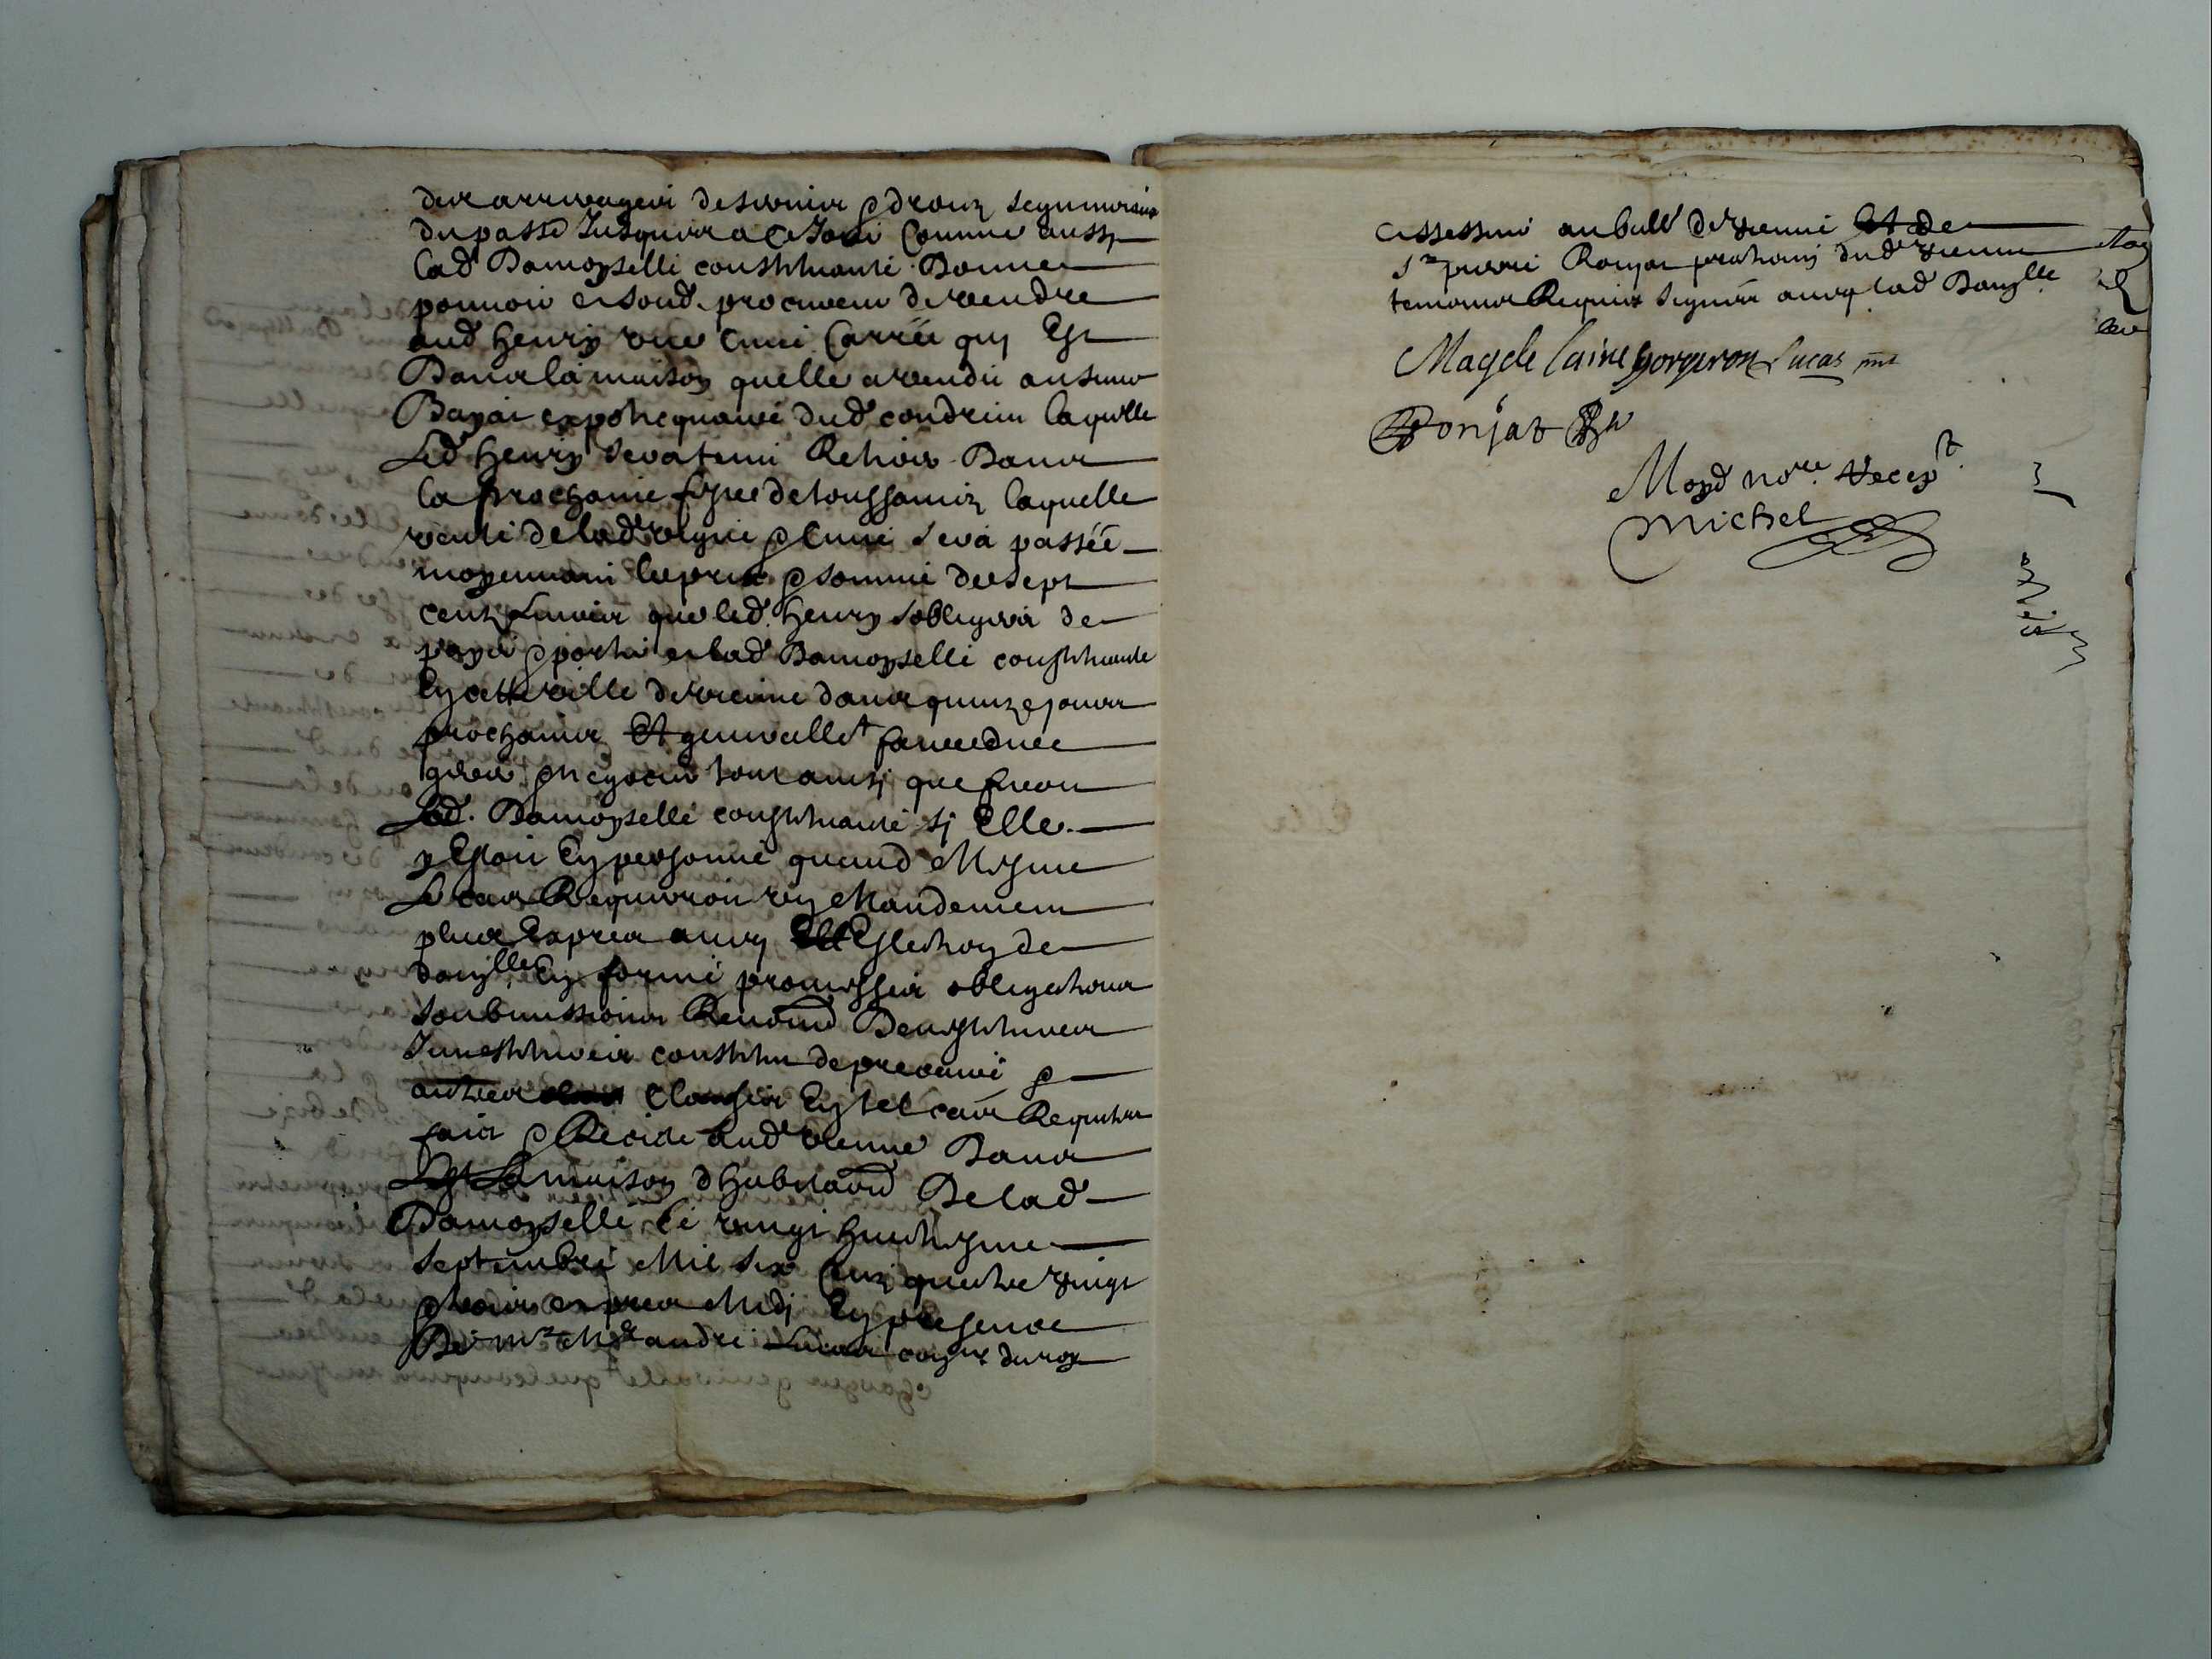 des arrerages de servis & droitz seigneuriaux
du passé Jusques a Ce Jour Comme aussy
lad Damoyselle constituante Donne
pouvoir a sond. procureur de vendre
aud henry une Cuue Carrée quy Est
Dans la maison quelle a vendu au sieur
du d condrieu laquelle
Led henry sera tenu Retirer Dans
la prochaine feste de toussainctz laquelle
vente de lad vigne & Cuue sera passée
moyennant le prix & somme de sept
centz Liures que led. henry sobligera de
payer & porter a lad Damoyselle constituante
En cette ville de vienne dans quinze jours
prochains Et generallet faire du
gerer & negocier tout ainsy que feroit
Lad. Damoyselle constituante sy Elle
y Estoit En personne quand Mesme
Le cas Requerroit un Mandement
plus Expres auec Eslection de
domlle En forme promesses obligations
soubmissions Renond
constitu de precaire &
autres clauses En tel cas Requises
faict & Recité aud vienne Dans
La maison dhabitaond De lad
Damoyselle le vingt huictiesme
septembre Mil six Centz quatre vingt
& trois apres Midy En presence
De Mr Me andre Lucas coner du roy
assesseur au ball de vienne Et de
Sr pierre Ronjat praticien dud vienne
temoins Requis signés auec lad Damlle
Magdelaine gorgeron Lucas pnt
Ronjat pnt
not Recept
Michel